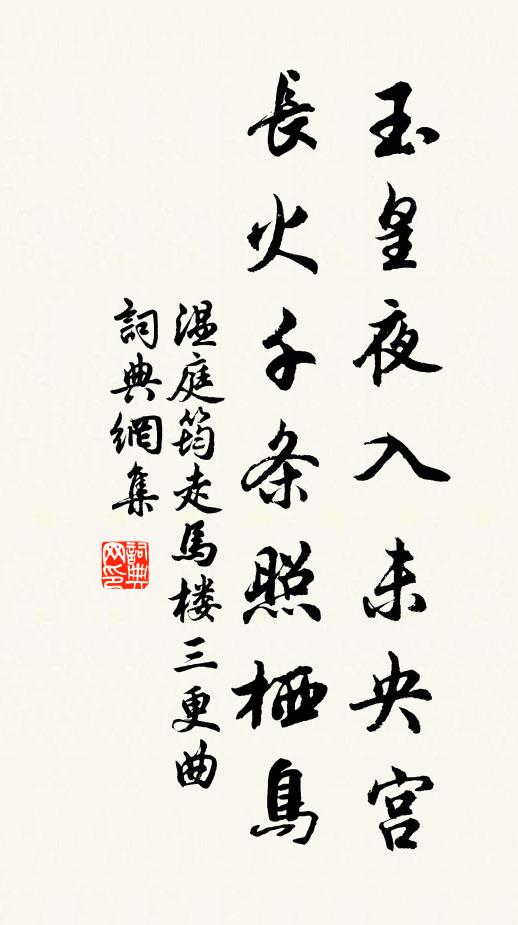 玉皇夜入未央宫
長火千条照栖鳥
温庭筠走馬楼三更曲
詞典網集
詞典网印